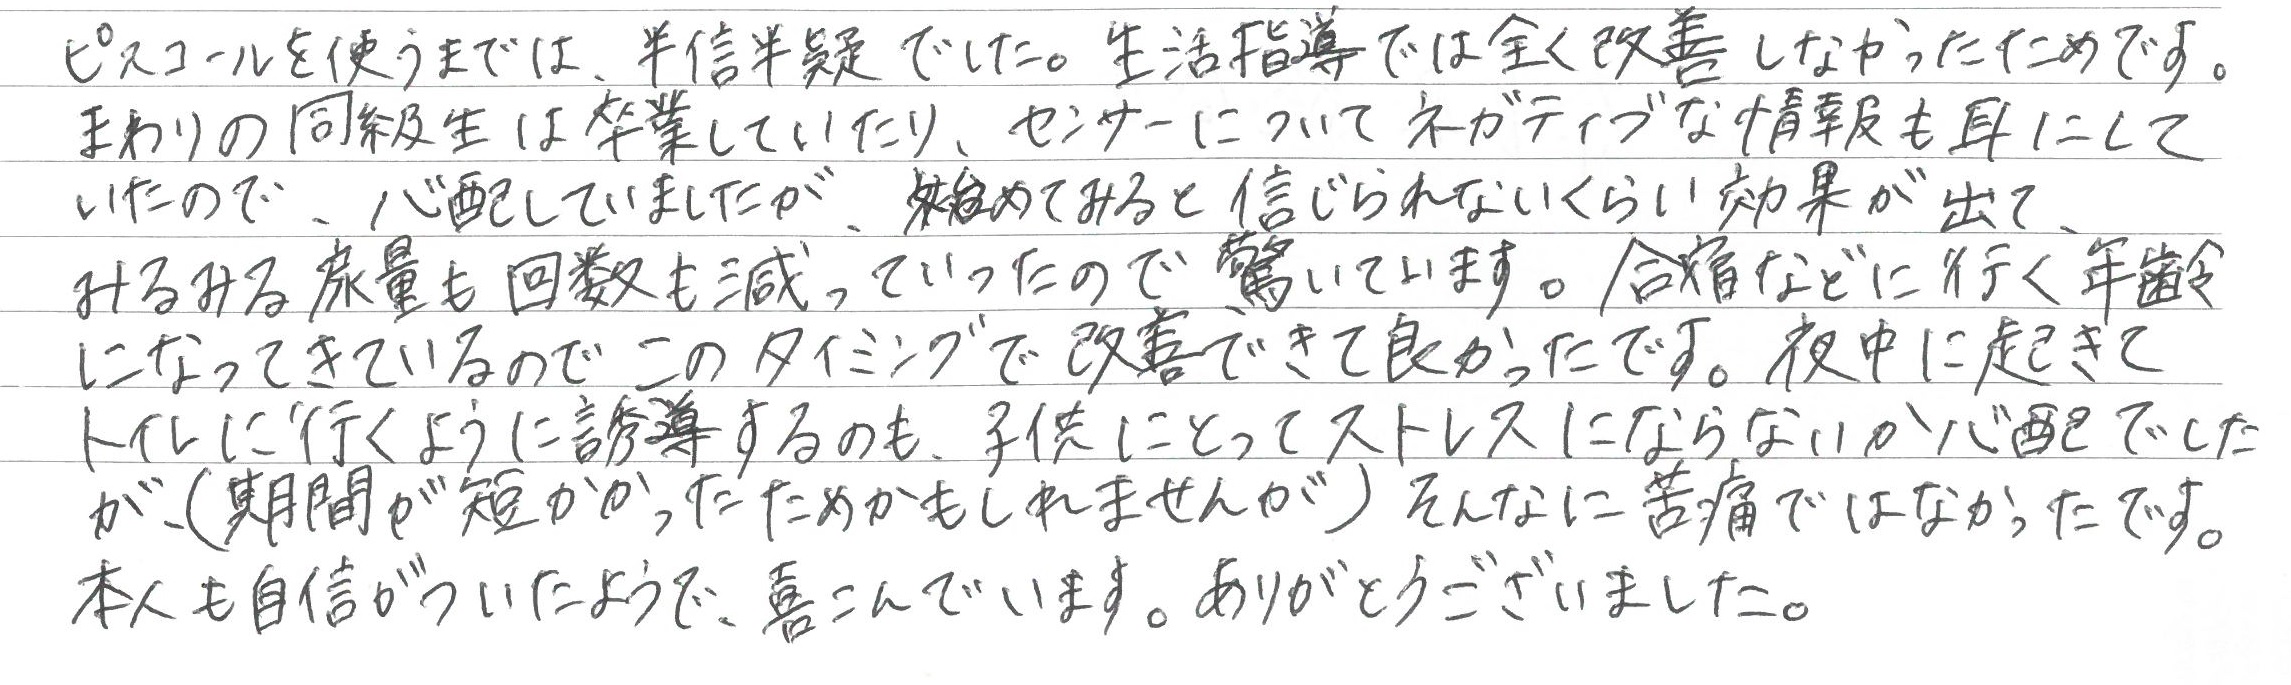 ピスコールを使うまでは、半信半疑でした。生活指導では全く改善しなかったためです。
まわりの同級生は卒業していたり、センサーについてネガティブな情報も耳にして
いたので、心配していましたが、始めてみると信じられないくらい効果が出て、
みるみる尿量も回数も減っていったので驚いています。合宿などに行く年齢
になってきているのでこのタイミングで改善できて良かったです。夜中に起きて
トイレに行くように誘導するのも、子供にとってストレスにならないか心配でした
が、(期間が短かかったためかもしれませんが)そんなに苦痛ではなかったです。
本人も自信がついたようで、喜こんでいます。ありがとうございました。